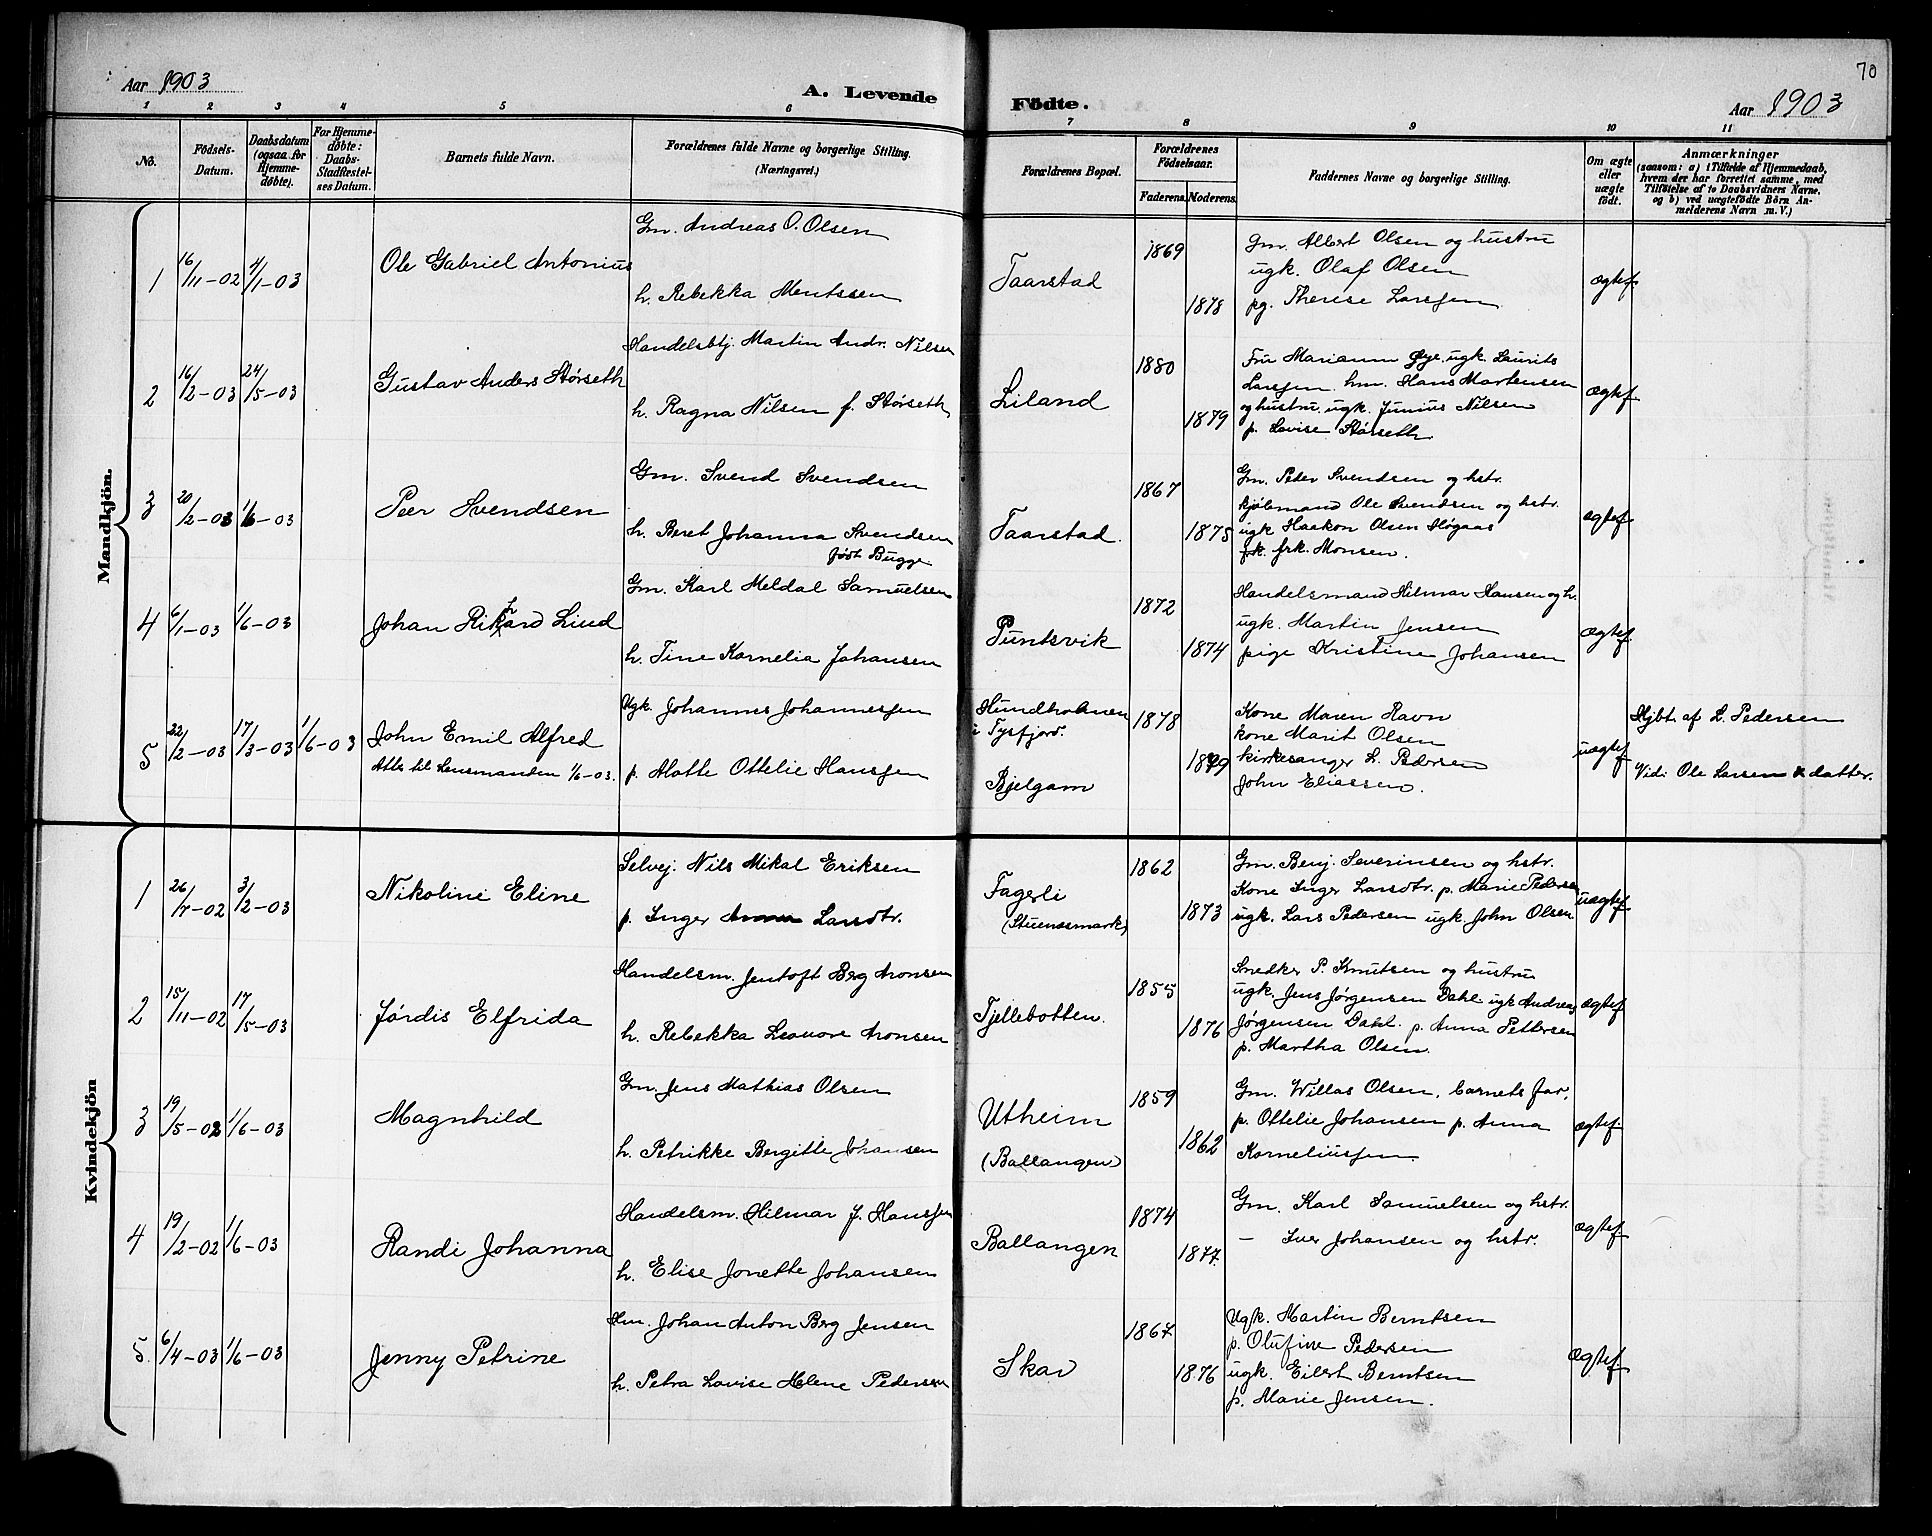 70
Aar 1903
A. Levende
Födte.
Aar 1903
1 2 3 4 5 6 7 8 9 10 11
No.
Födsels-Datum.
Daabsdatum (ogsaa for Hjemme-døbte).
For Hjemme-døbte: Daabs-Stadfæstelses Datum.
Barnets fulde Navn.
Forældrenes fulde Navne og borgerlige Stilling. (Næringsvei.)
Forældrenes Bopæl.
Forældrenes Födselsaar.
Faderens. Moderens.
Faddernes Navne og borgerlige Stilling.
Om ægte eller uægte födt.
Anmærkninger
(saasom: a) i Tilfælde af Hjemmedaab, hvem der har forrettet samme, med Tilföielse af to Daabsvidners Navne, og b) ved uægtefödte Börn Anmelderens Navn m. V.)
Mandkjön.
1 16/11-02 4/1-03 Ole Gabriel Antonius
Gm. Andreas O. Olsen
h. Rebekka Mentssen
Taarstad
1869
1878
Gm. Albert Olsen og hustru
ugk. Olaf Olsen
pg. Therese Larssen
ægtef.
2 16/2-03 24/5-03 Gustav Anders Størseth
Handelsbtj. Martin Andr. Nilsen
h. Ragna Nilsen f. Størseth
Liland
1880
1879
Fru Mariann Øye, ugk. Laurits
Larssen. hm. Hans Martensen
og hustru. ugk. Junius Nilsen
p. Lovise Størseth
ægtef.
3 20/2-03 1/6-03 Peer Svendsen
Gm. Svend Svendsen
h. Beret Johanna Svendsen
født Bugge.
Taarstad.
1867
1875
Gm. Peder Svendsen og hstr.
kjøbmand Ole Svendsen og hstr.
ugk Haakon Olsen Høgaas
frk. frk. Monsen.
ægtef.
4 6/1-03 1/6-03 Johan Rikhard Lind
Gm. Karl Meldal Samuelsen
h. Tine Kornelia Johansen
Puntsvik
1872
1874
Handelsmand Hilmar Hansen og h.
ugk. Martin Jensen
pige Kristine Johansen
ægtef.
5 22/2-03 17/3-03 1/6-03 John Emil Alfred
Attb. til Lensmanden 1/6-03.
Ugk. Johannes Johannessen
p. Hotte Ottelie Hanssen
Hundholmen
i Tysfjord.
Bjelgam
1878
1879
Kone Maren Ravn
kone Marit Olsen
kirkesanger L. Pedersen
John Eliassen.
uægtef.
Hjbt. af L. Pedersen
Vid: Ole Larsen & datter.
Kvindekjön
1 26/7-02 3/2-03 Nikoline Eline
Selvej. Nils Mikal Eriksen
p. Inger Larsdtr.
Fagerli
(Stuenesmark)
1862
1873
Gm. Benj. Severinsen og hstr.
Kone Inger Larsdtr. p. Marie Pedersen
ugk. Lars Pedersen ugk. John Olsen
uægtef.
2 15/11-02 17/5-03 Jørdis Elfrida
Handelsm. Jentoft Berg Aronsen
h. Rebekka Leonore Aronsen
Tjellebotten.
1855
1876
Snedker P. Knutsen og hustru
ugk. Jens Jørgensen Dahl. ugk Andreas
Jørgensen Dahl. p. Anna Pettersen
p. Martha Olsen.
ægtef.
3 19/5-02 1/6-03 Magnhild
Gm. Jens Mathias Olsen
h. Petrikke Bergitte Johansen
Utheim
(Ballangen)
1859
1862
Gm. Willas Olsen, barnets far,
p. Ottelie Johansen p. Anna
Korneliussen.
ægtef.
4 19/2-02 1/6-03 Randi Johanna
Handelsm. Hilmar J. Hanssen
h. Elise Jonette Johansen
Ballangen
1874
1877.
Gm. Karl Samuelsen og hstr.
— Iver Johansen og hstr.
ægtef.
5. 6/4-03 1/6-03 Jenny Petrine
Hm. Johan Anton Berg Jensen
h. Petra Lovise Helene Pedersen
Skar
1867
1876
Ugk. Martin Berntsen
p. Olufine Pedersen
ugk. Eilert Berntsen
p. Marie Jensen.
ægtef.